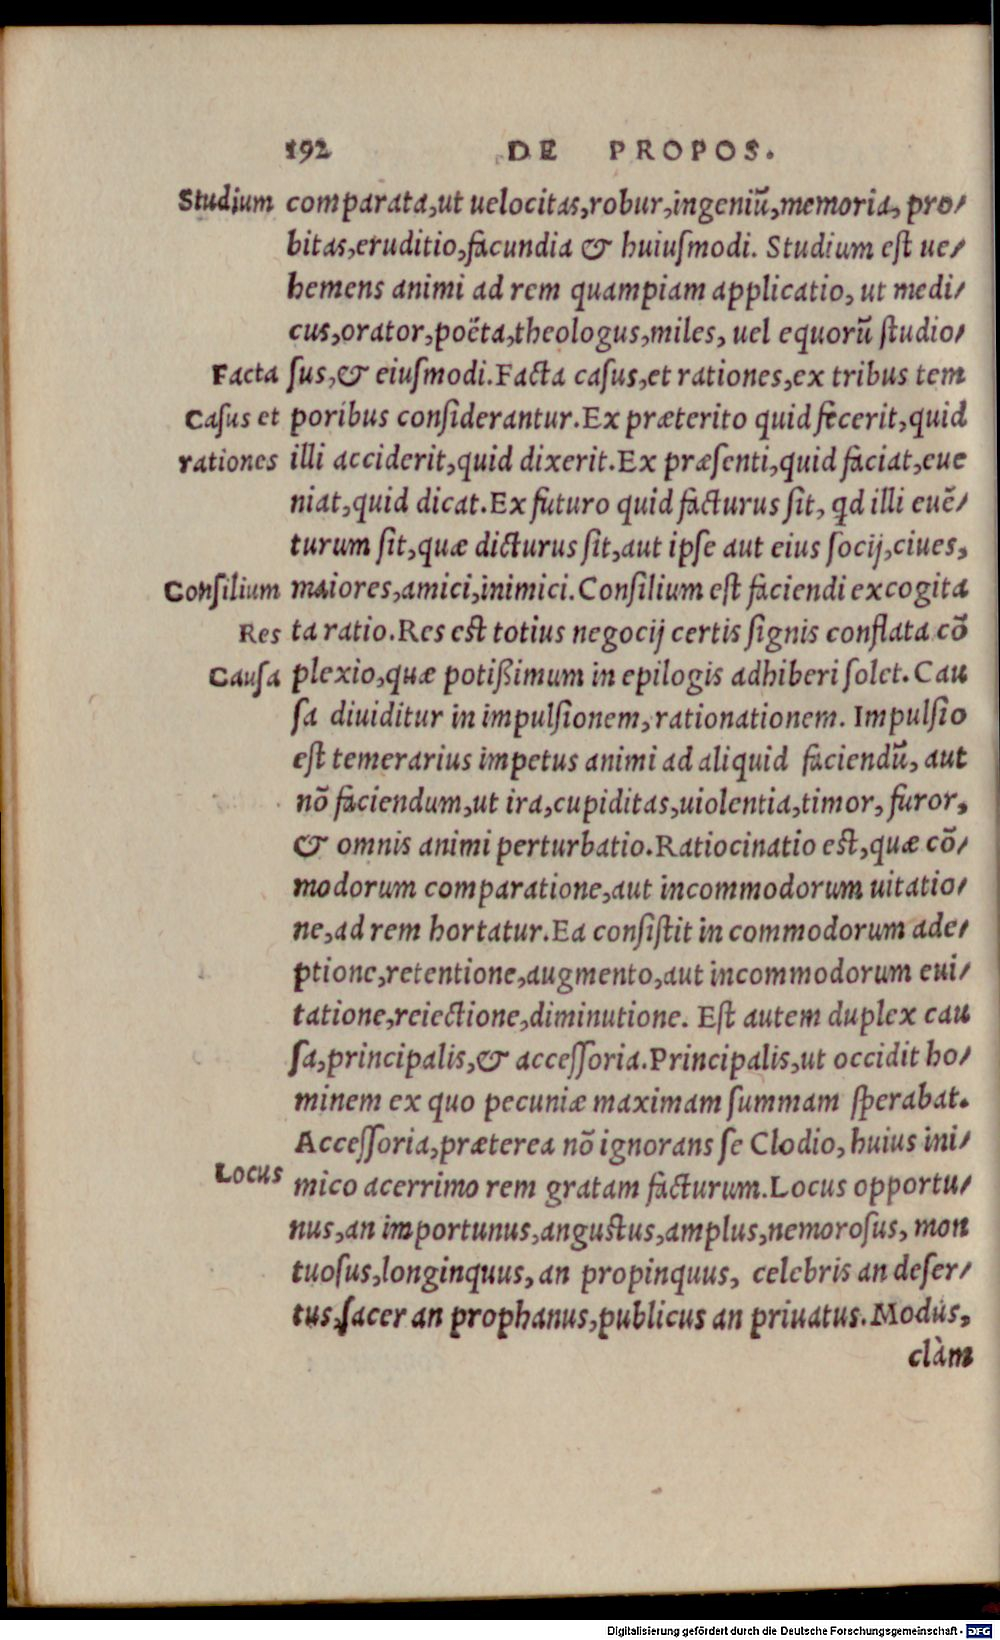 192 DE PROPOS.
Studium comparata,ut uelocitas,robur,ingeniũ,memoria, pro/
bitas,eruditio,facundia & huiuſmodi. Studium eſt ue/
hemens animi ad rem quampiam applicatio, ut medi/
cus,orator,poëta,theologus,miles, uel equorũ ſtudio/
Facta ſus,& eiuſmodi.Facta caſus,et rationes,ex tribus tem
Caſus et poribus conſiderantur.Ex præterito quid fecerit,quid
rationes illi acciderit,quid dixerit.Ex præſenti,quid faciat,eue
niat,quid dicat.Ex futuro quid facturus ſit, qd illi euẽ/
turum ſit,quæ dicturus ſit,aut ipſe aut eius ſocij,ciues,
Conſilium maiores,amici,inimici.Conſilium eſt faciendi excogita
Res ta ratio.Res est totius negocij certis ſignis conflata cõ
Cauſa plexio,quæ potißimum in epilogis adhiberi ſolet. Cau
ſa diuiditur in impulſionem,rationationem. Impulſio
eſt temerarius impetus animi ad aliquid faciendũ, aut
nõ faciendum,ut ira,cupiditas,uiolentia,timor, furor,
& omnis animi perturbatio.Ratiocinatio est,quæ cõ/
modorum comparatione,aut incommodorum uitatio/
ne,ad rem hortatur.Ea conſiſtit in commodorum ade/
ptione,retentione,augmento,aut incommodorum eui/
tatione,reiectione,diminutione. Eſt autem duplex cau
ſa,principalis,& acceſſoria.Principalis,ut occidit ho/
minem ex quo pecuniæ maximam ſummam ſperabat.
Acceſſoria,præterea nõ ignorans ſe Clodio, huius ini/
Locus mico acerrimo rem gratam facturum.Locus opportu/
nus,an importunus,anguſtus,amplus,nemoroſus, mon
tuoſus,longinquus, an propinquus, celebris an deſer/
tus,ſacer an prophanus,publicus an priuatus.Modus,
clàm
Digitalisierung gefördert durch die Deutsche Forschungsgemeinschaft - DFG